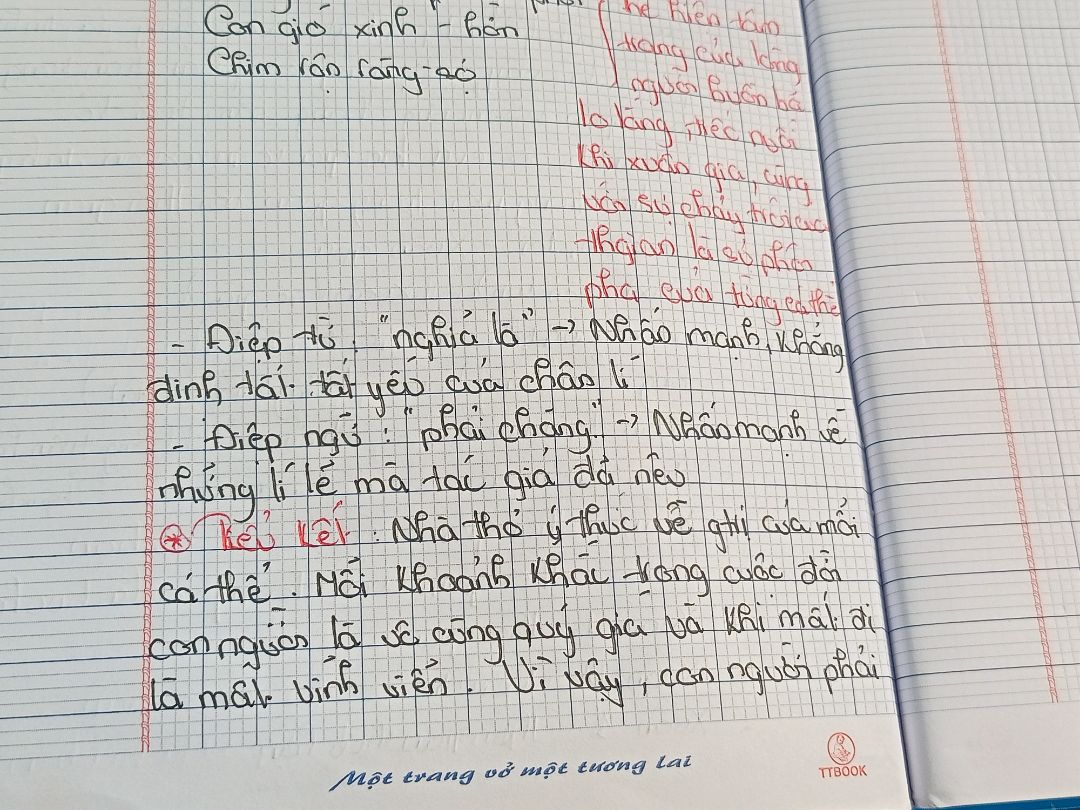 Con gió xinh - hờn
Chim rộn ràng - sợ
thể hiện tâm
trạng của lòng
người buồn bã
lo lắng, tiếc nuối
khi xuân qua, cùng
với sự chảy trôi của
thgian là sự phôi
pha của từng cá thể
- Điệp từ "nghĩa là" → Nhấn mạnh, khẳng
định tất tất yếu của chân lí
- Điệp ngữ: "phải chăng" → Nhấn mạnh về
những lí lẽ mà tác giả đã nêu
* Tiểu kết: Nhà thơ ý thức về gtrị của mỗi
cá thể. Mỗi khoảnh khắc trong cuộc đời
con người là vô cùng quý giá và khi mất đi
là mất vĩnh viễn. Vì vậy, con người phải
Một trang vở một tương lai
TTBOOK